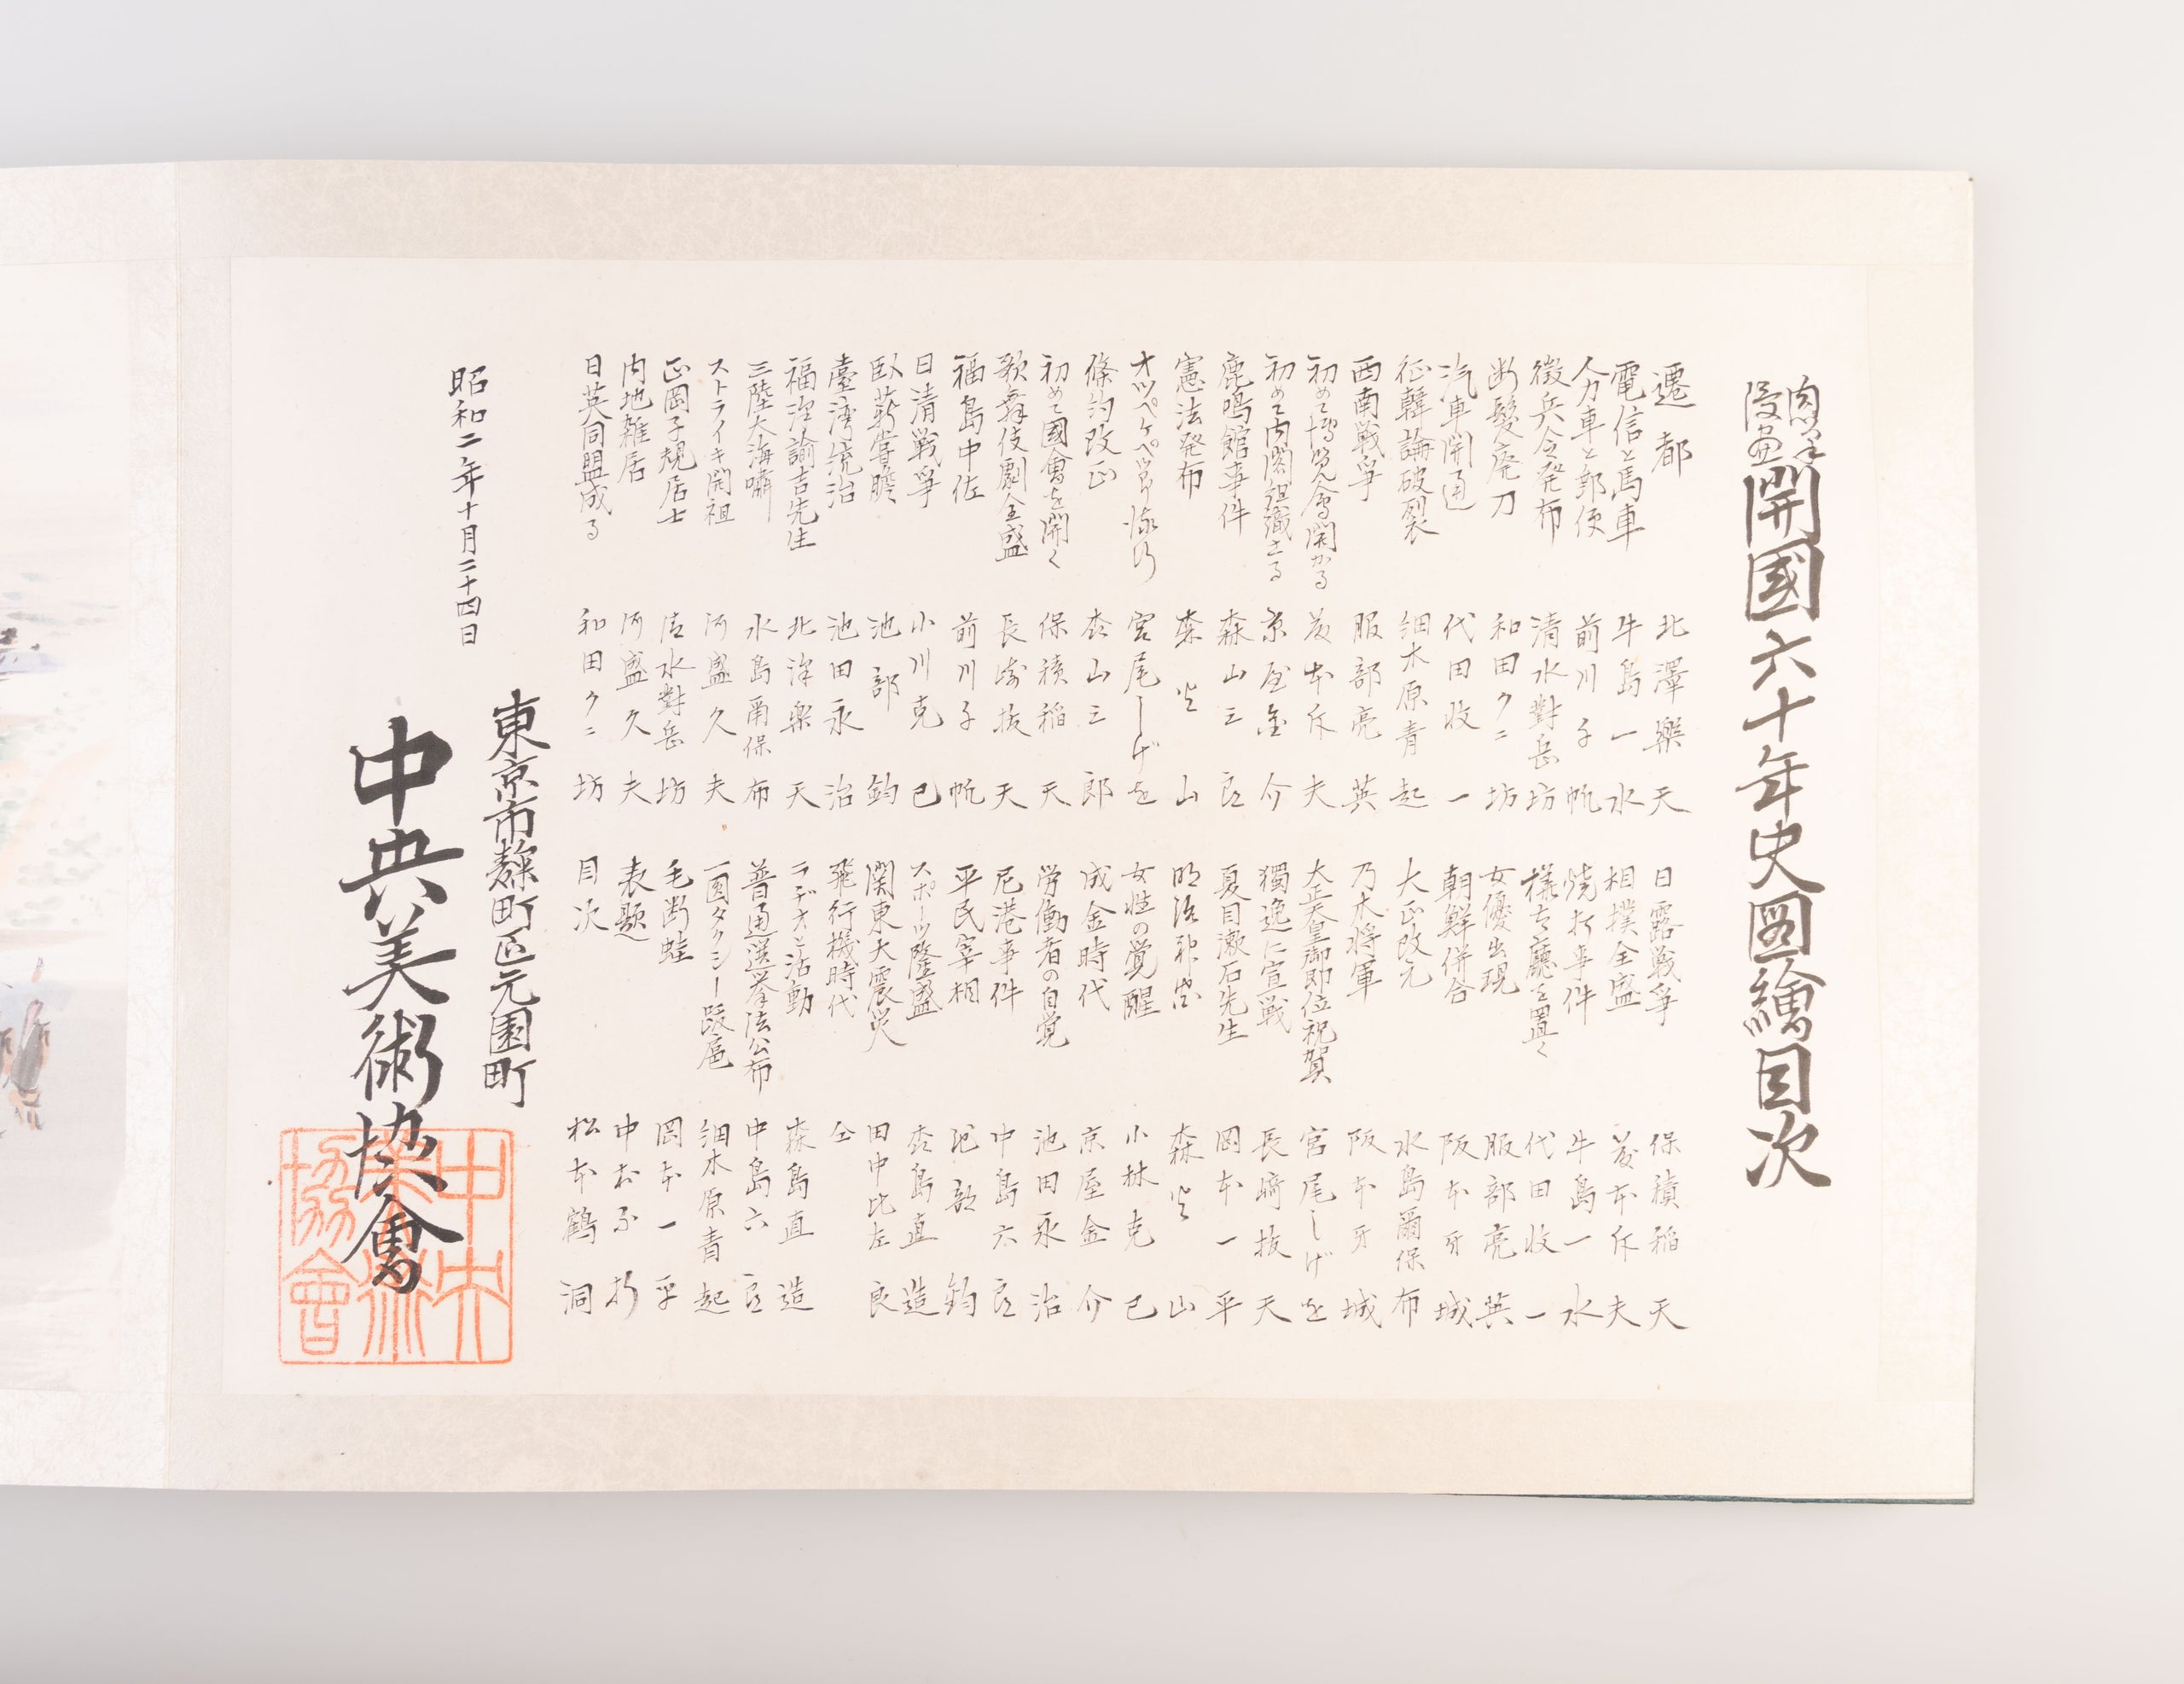 肉筆漫画 開國六十年史圖繪目次
遷都 北澤樂天
電信と馬車 牛島一水
人力車と郵便 前川千帆
徴兵令発布 清水對岳坊
断髪廃刀 和田クニ坊
汽車開通 代田收一
征韓論破裂 細木原青起
西南戦爭 服部亮英
初めて博覧會開かる 宍戸
初めて内閣組織さる 京屋金介
鹿鳴館事件 森山三郎
憲法発布 森火山
オツペケペ節流行 宮尾しげを
條約改正 森山三郎
初めて國會を開く 保積稲天
歌舞伎劇全盛 長崎抜天
福島中佐 前川千帆
日清戦爭 小川克己
臥薪甞膽 池部鈞
臺湾統治 池田永治
福澤諭吉先生 北澤楽天
三陸大海嘯 水島爾保布
ストライキ開祖 河盛久夫
正岡子規居士 清水對岳坊
内地雑居 河盛久夫
日英同盟成る 和田クニ坊
日露戦爭 保積稲天
相撲全盛
焼打事件 牛島一水
樺太廳を置く 代田收一
女優出現 服部亮英
朝鮮併合 阪本牙城
大正改元 水島爾保布
乃木将軍 阪本牙城
大正天皇御即位祝賀 宮尾しげを
獨逸に宣戦 長崎抜天
夏目漱石先生 岡本一平
明治神宮 森火山
女性の覚醒 小林克己
成金時代 京屋金介
労働者の自覚 池田永治
尼港事件 中島六郎
平民宰相 池部鈞
スポーツ隆盛 森島直造
関東大震災 田中比左良
飛行機時代 仝
ラヂオと活動 森島直造
普通選挙法公布 中島六郎
一圓タクシー跋扈 細木原青起
毛断蛙 岡本一平
表題
目次 松本鶴洞
昭和二年十月二十四日
東京市麹町區元園町
中央美術協會
中央美術協會